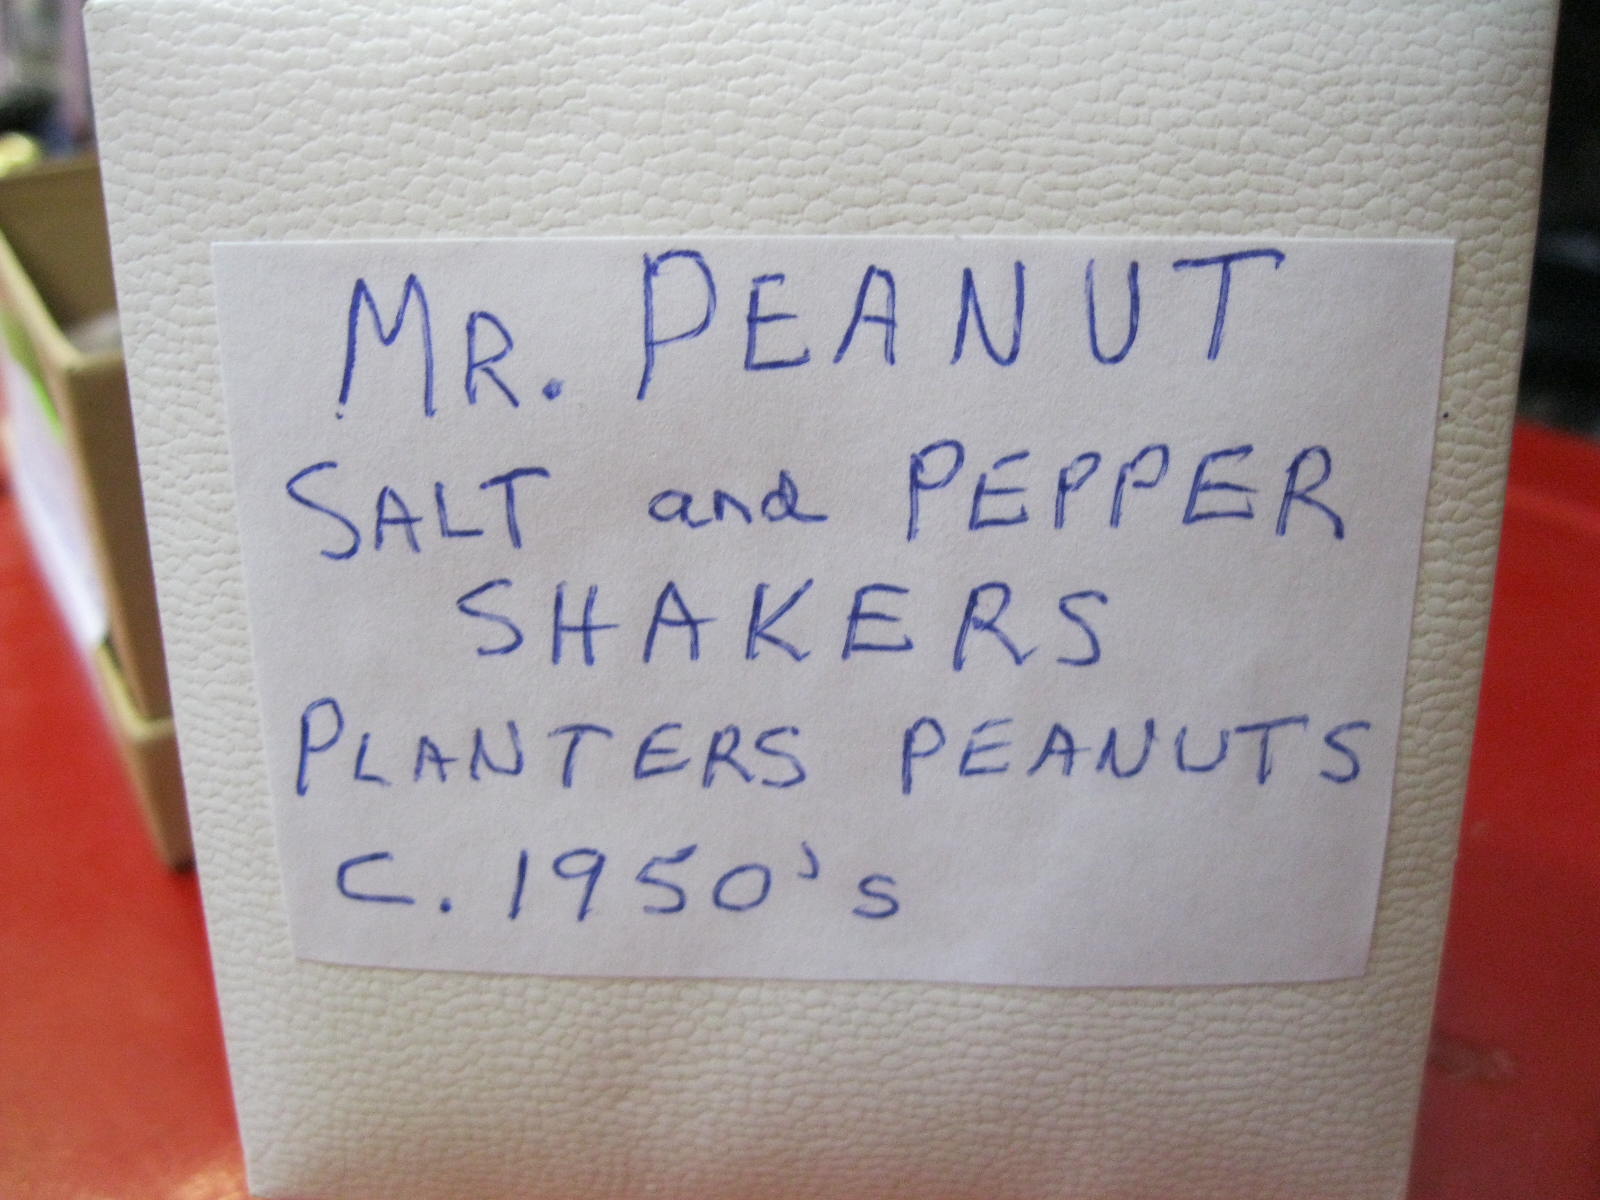 MR. PEANUT
SALT and PEPPER
SHAKERS
PLANTERS PEANUTS
C. 1950's